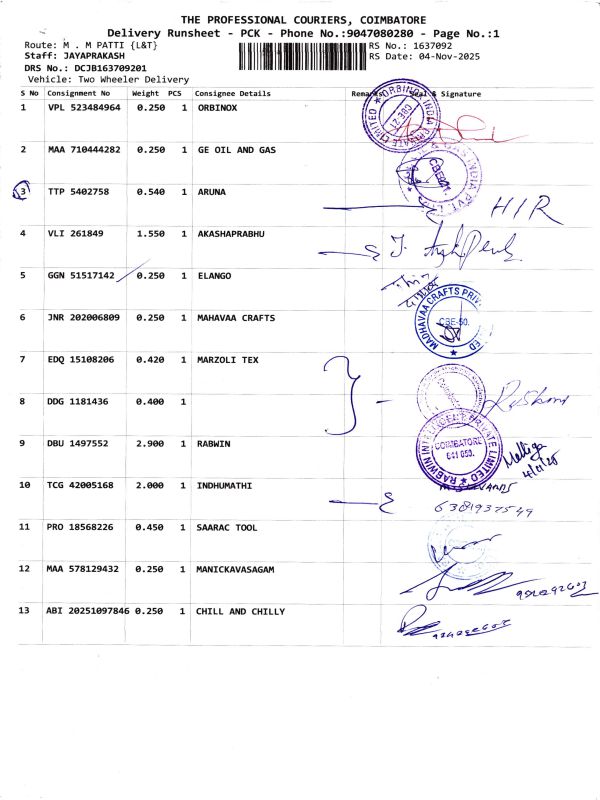 THE PROFESSIONAL COURIERS, COIMBATORE
Delivery Runsheet - PCK - Phone No.:9047080280 - Page No.:1
Route: M . M PATTI {L&T}
RS No.: 1637092
Staff: JAYAPRAKASH
RS Date: 04-Nov-2025
DRS No.: DCJB163709201
Vehicle: Two Wheeler Delivery
S No Consignment No Weight PCS Consignee Details Remarks Seal & Signature
1 VPL 523484964 0.250 1 ORBINOX
ORBINOX INDIA PRIVATE LIMITED
CBE 21
2 MAA 710444282 0.250 1 GE OIL AND GAS
GAS INDIA PVT. LTD
CBE
3 TTP 5402758 0.540 1 ARUNA
H/R
4 VLI 261849 1.550 1 AKASHAPRABHU
5 GGN 51517142 0.250 1 ELANGO
6 JNR 202006809 0.250 1 MAHAVAA CRAFTS
MADHAVAA CRAFTS PRIV ED
CBE-50.
7 EDQ 15108206 0.420 1 MARZOLI TEX
8 DDG 1181436 0.400 1
9 DBU 1497552 2.900 1 RABWIN
RABWIN PRIVATE LIMITED
COIMBATORE
641 050.
Malliga
4/11/25
10 TCG 42005168 2.000 1 INDHUMATHI
6381937549
11 PRO 18568226 0.450 1 SAARAC TOOL
12 MAA 578129432 0.250 1 MANICKAVASAGAM
13 ABI 20251097846 0.250 1 CHILL AND CHILLY